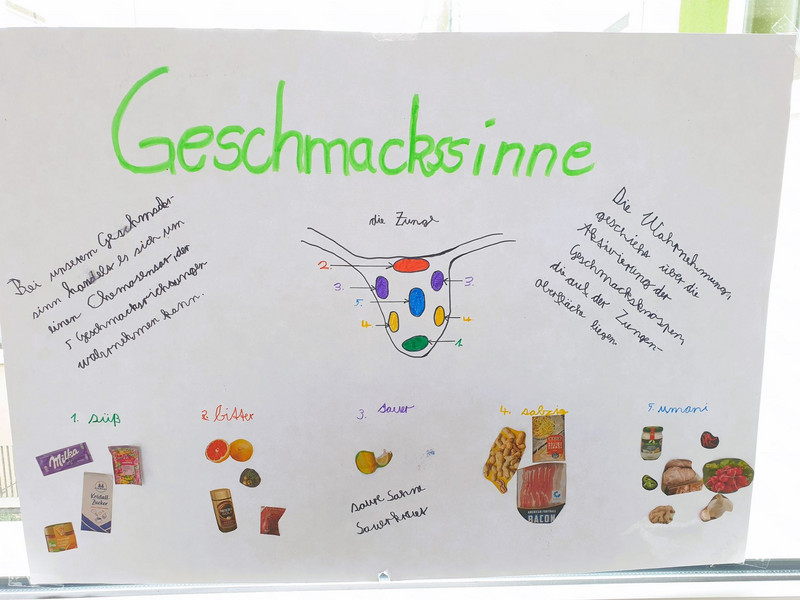 Geschmackssinne
Bei unserem Geschmacks-
sinn handelt es sich um
einen Chemosensor, der
5 Geschmacksrichtungen
wahrnehmen kann.
die Zunge
2.
3.
3.
5.
4.
4.
1.
Die Wahrnehmung,
geschieht über die
Aktivierung der
Geschmacksknospen,
die auf der Zungen-
oberfläche liegen.
1. süß
Milka
Kristall
Zucker
2. bitter
3. sauer
saure Sahne
Sauerkraut
4. salzig
BACON
5. umami